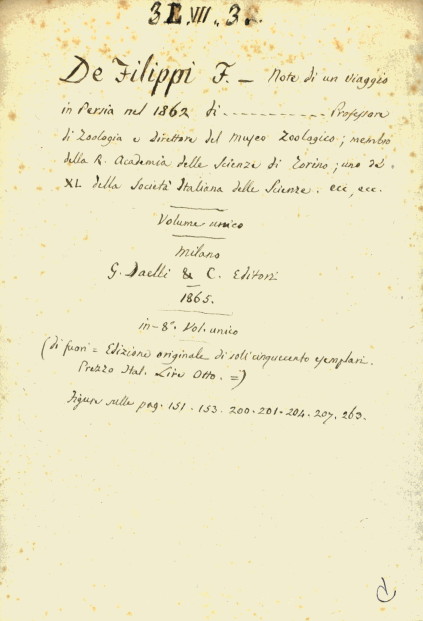 De Filippi F. — Note di un viaggio
in Persia nel 1862 di ------------ Professore
di Zoologia e Direttore del Museo Zoologico; membro
della R. Academia delle Scienze di Torino; uno dei
XL della Società Italiana delle Scienze. ecc, ecc.
Volume unico
Milano
G. Daelli & C. Editori
1865.
in-8°. Vol. unico
(di fuori = Edizione originale di soli cinquecento esemplari.
Prezzo Ital. Lire Otto. =)
Figure nelle pag. 151. 153. 200. 201. 204. 207. 263.